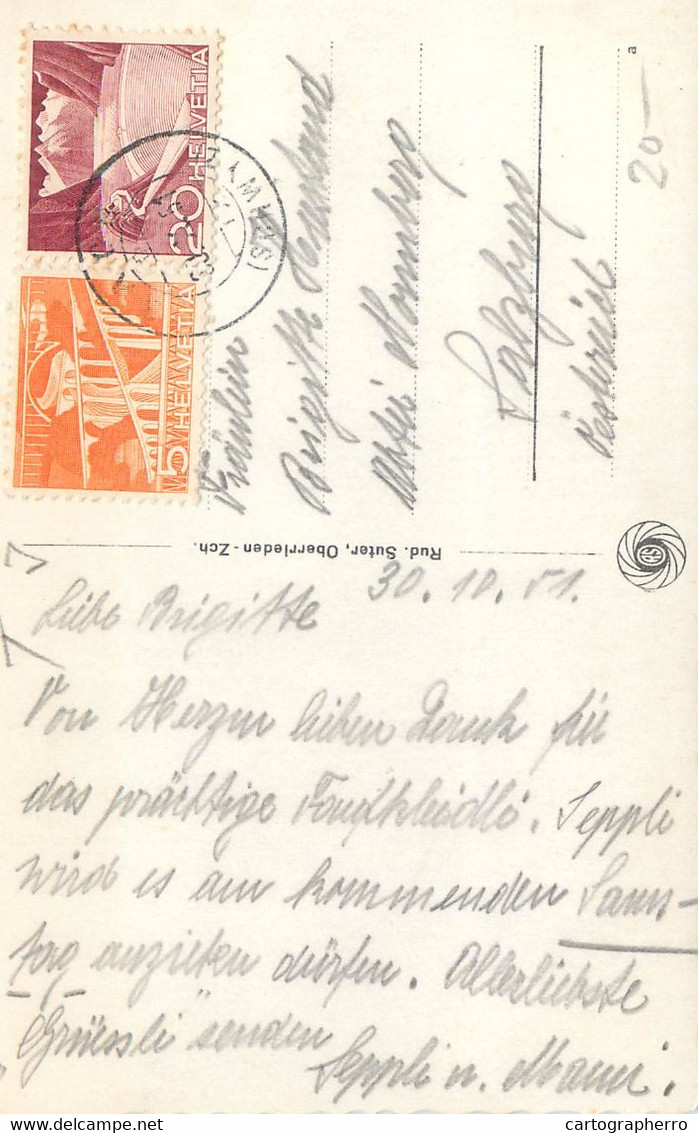 HELVETIA
20
HELVETIA
5
Fräulein
Brigitte
Abtei Nonnberg
Salzburg
Östereich
20—
a
Rud. Suter, Oberrieden-Zch.
30. 10. 51.
Liebe Brigitte
Von Herzen lieben Dank für
das prächtige Taufkleidli. Seppli
wird es am kommenden Sams-
tag anziehen dürfen. Allerliebste
"Grüessli" senden
Seppli u. Mami.
cartographerro